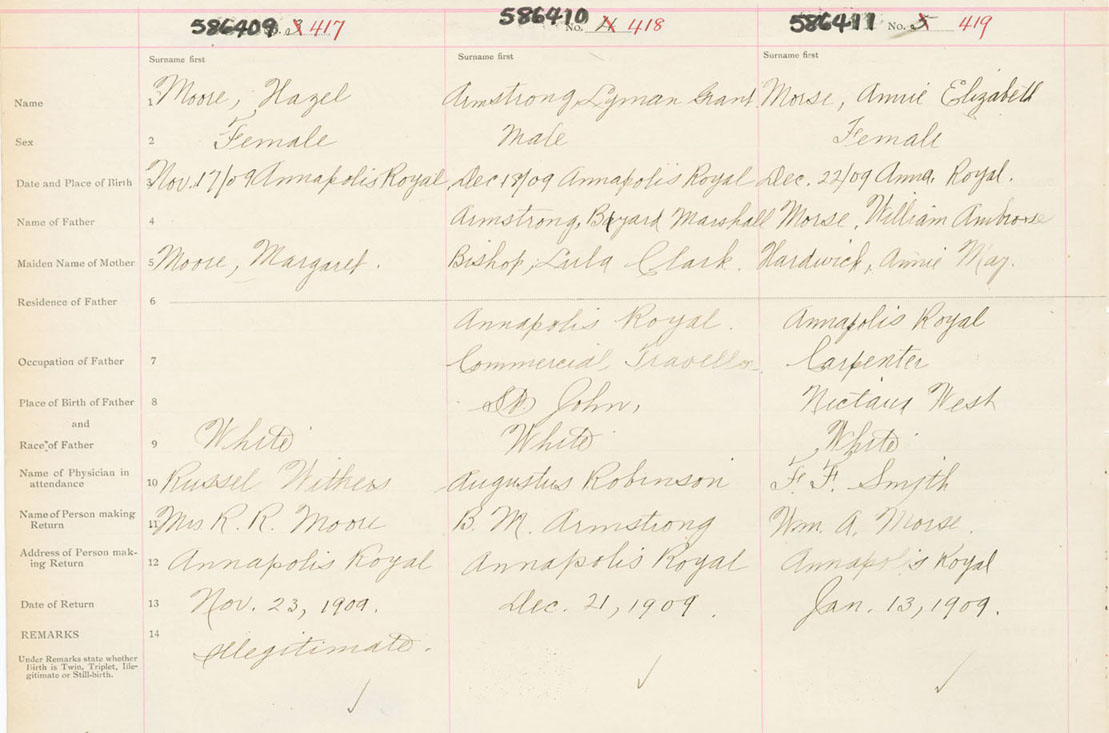 586409 No. 3 417 586410 No. 4 418 586411 No. 5 419
Surname first Surname first Surname first
Name 1 Moore, Hazel Armstrong, Lyman Grant Morse, Annie Elizabeth
Sex 2 Female Male Female
Date and Place of Birth 3 Nov. 17/09 Annapolis Royal Dec 18/09 Annapolis Royal Dec. 22/09 Anna. Royal.
Name of Father 4 Armstrong, Bayard Marshall Morse, William Ambrose
Maiden Name of Mother 5 Moore, Margaret. Bishop, Clark. Hardwick, Annie May.
Residence of Father 6
Annapolis Royal. Annapolis Royal
Occupation of Father 7 Commercial Traveller Carpenter
Place of Birth of Father 8 St. John, Nictaux West
and
Race of Father 9 White White White
Name of Physician in
attendance 10 Russel Withers Augustus Robinson F. F. Smith
Name of Person making
Return 11 Mrs R. R. Moore B. M. Armstrong Wm. A. Morse.
Address of Person mak-
ing Return 12 Annapolis Royal Annapolis Royal Annapolis Royal
Date of Return 13 Nov. 23, 1909. Dec. 21, 1909 Jan. 13, 1909.
REMARKS 14 Illegitimate.
Under Remarks state whether
Birth is Twin, Triplet, Ille-
gitimate or Still-birth.